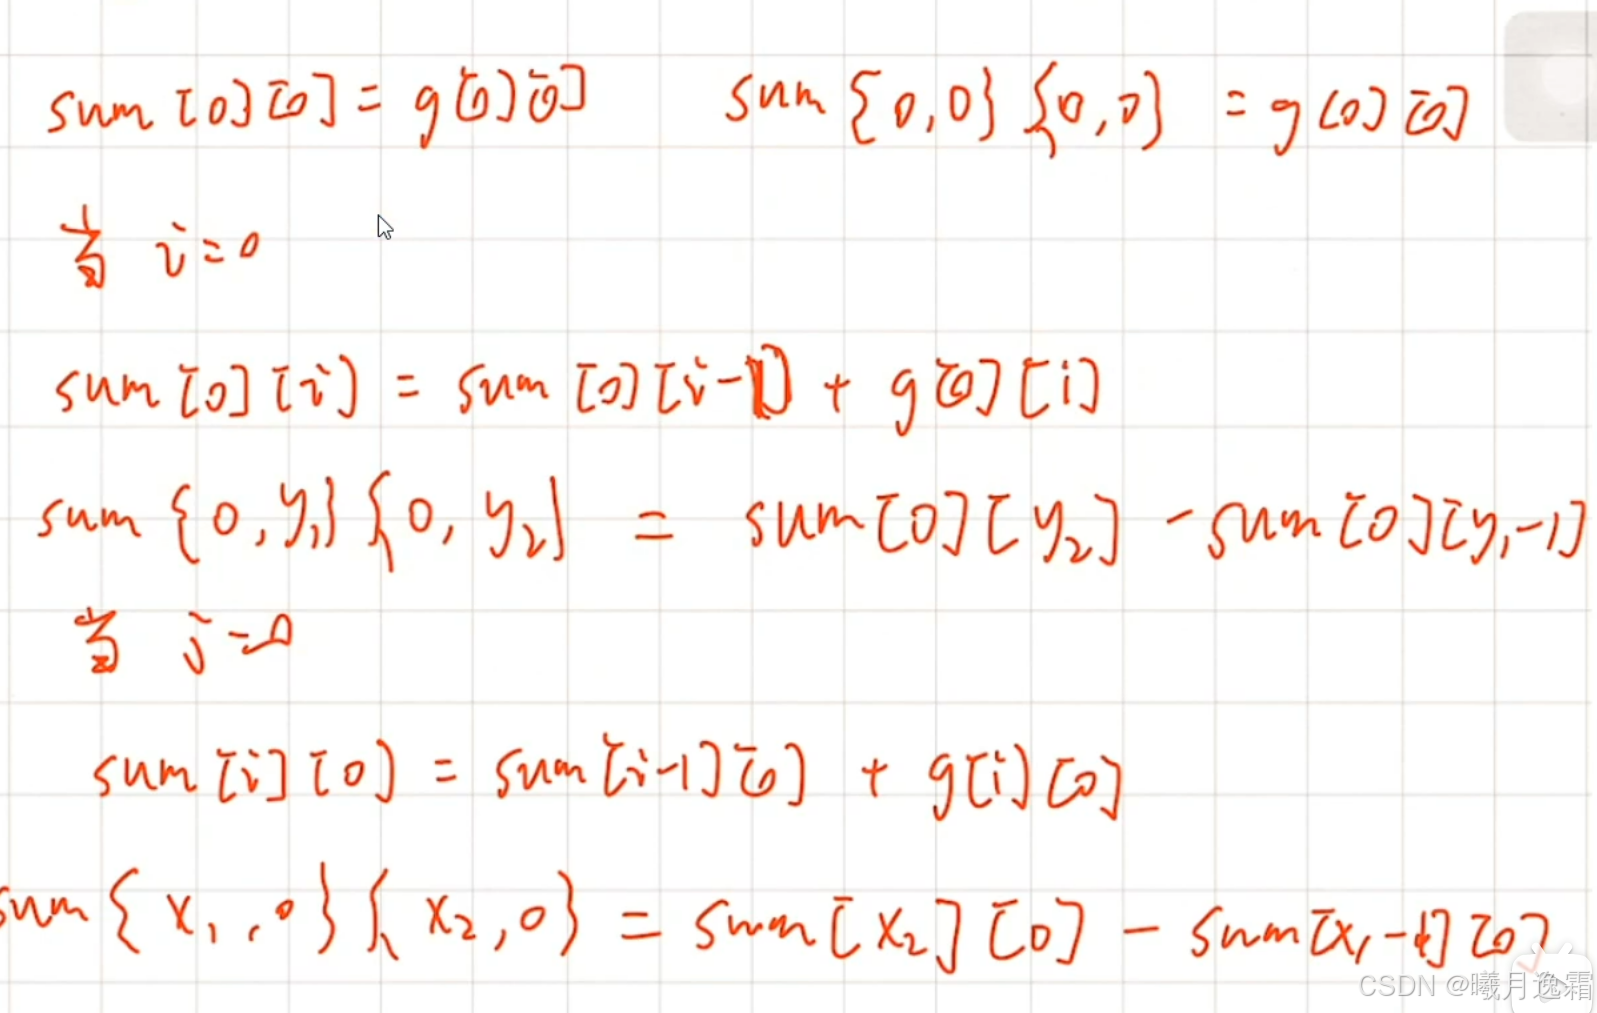 sum[0][0] = g[0][0] sum{0,0}{0,0} = g[0][0]
当 i=0
sum[0][i] = sum[0][i-1] + g[0][i]
sum{0,y₁}{0,y₂} = sum[0][y₂] - sum[0][y₁-1]
当 j=0
sum[i][0] = sum[i-1][0] + g[i][0]
sum{x₁,0}{x₂,0} = sum[x₂][0] - sum[x₁-1][0]
CSDN @曦月逸霜